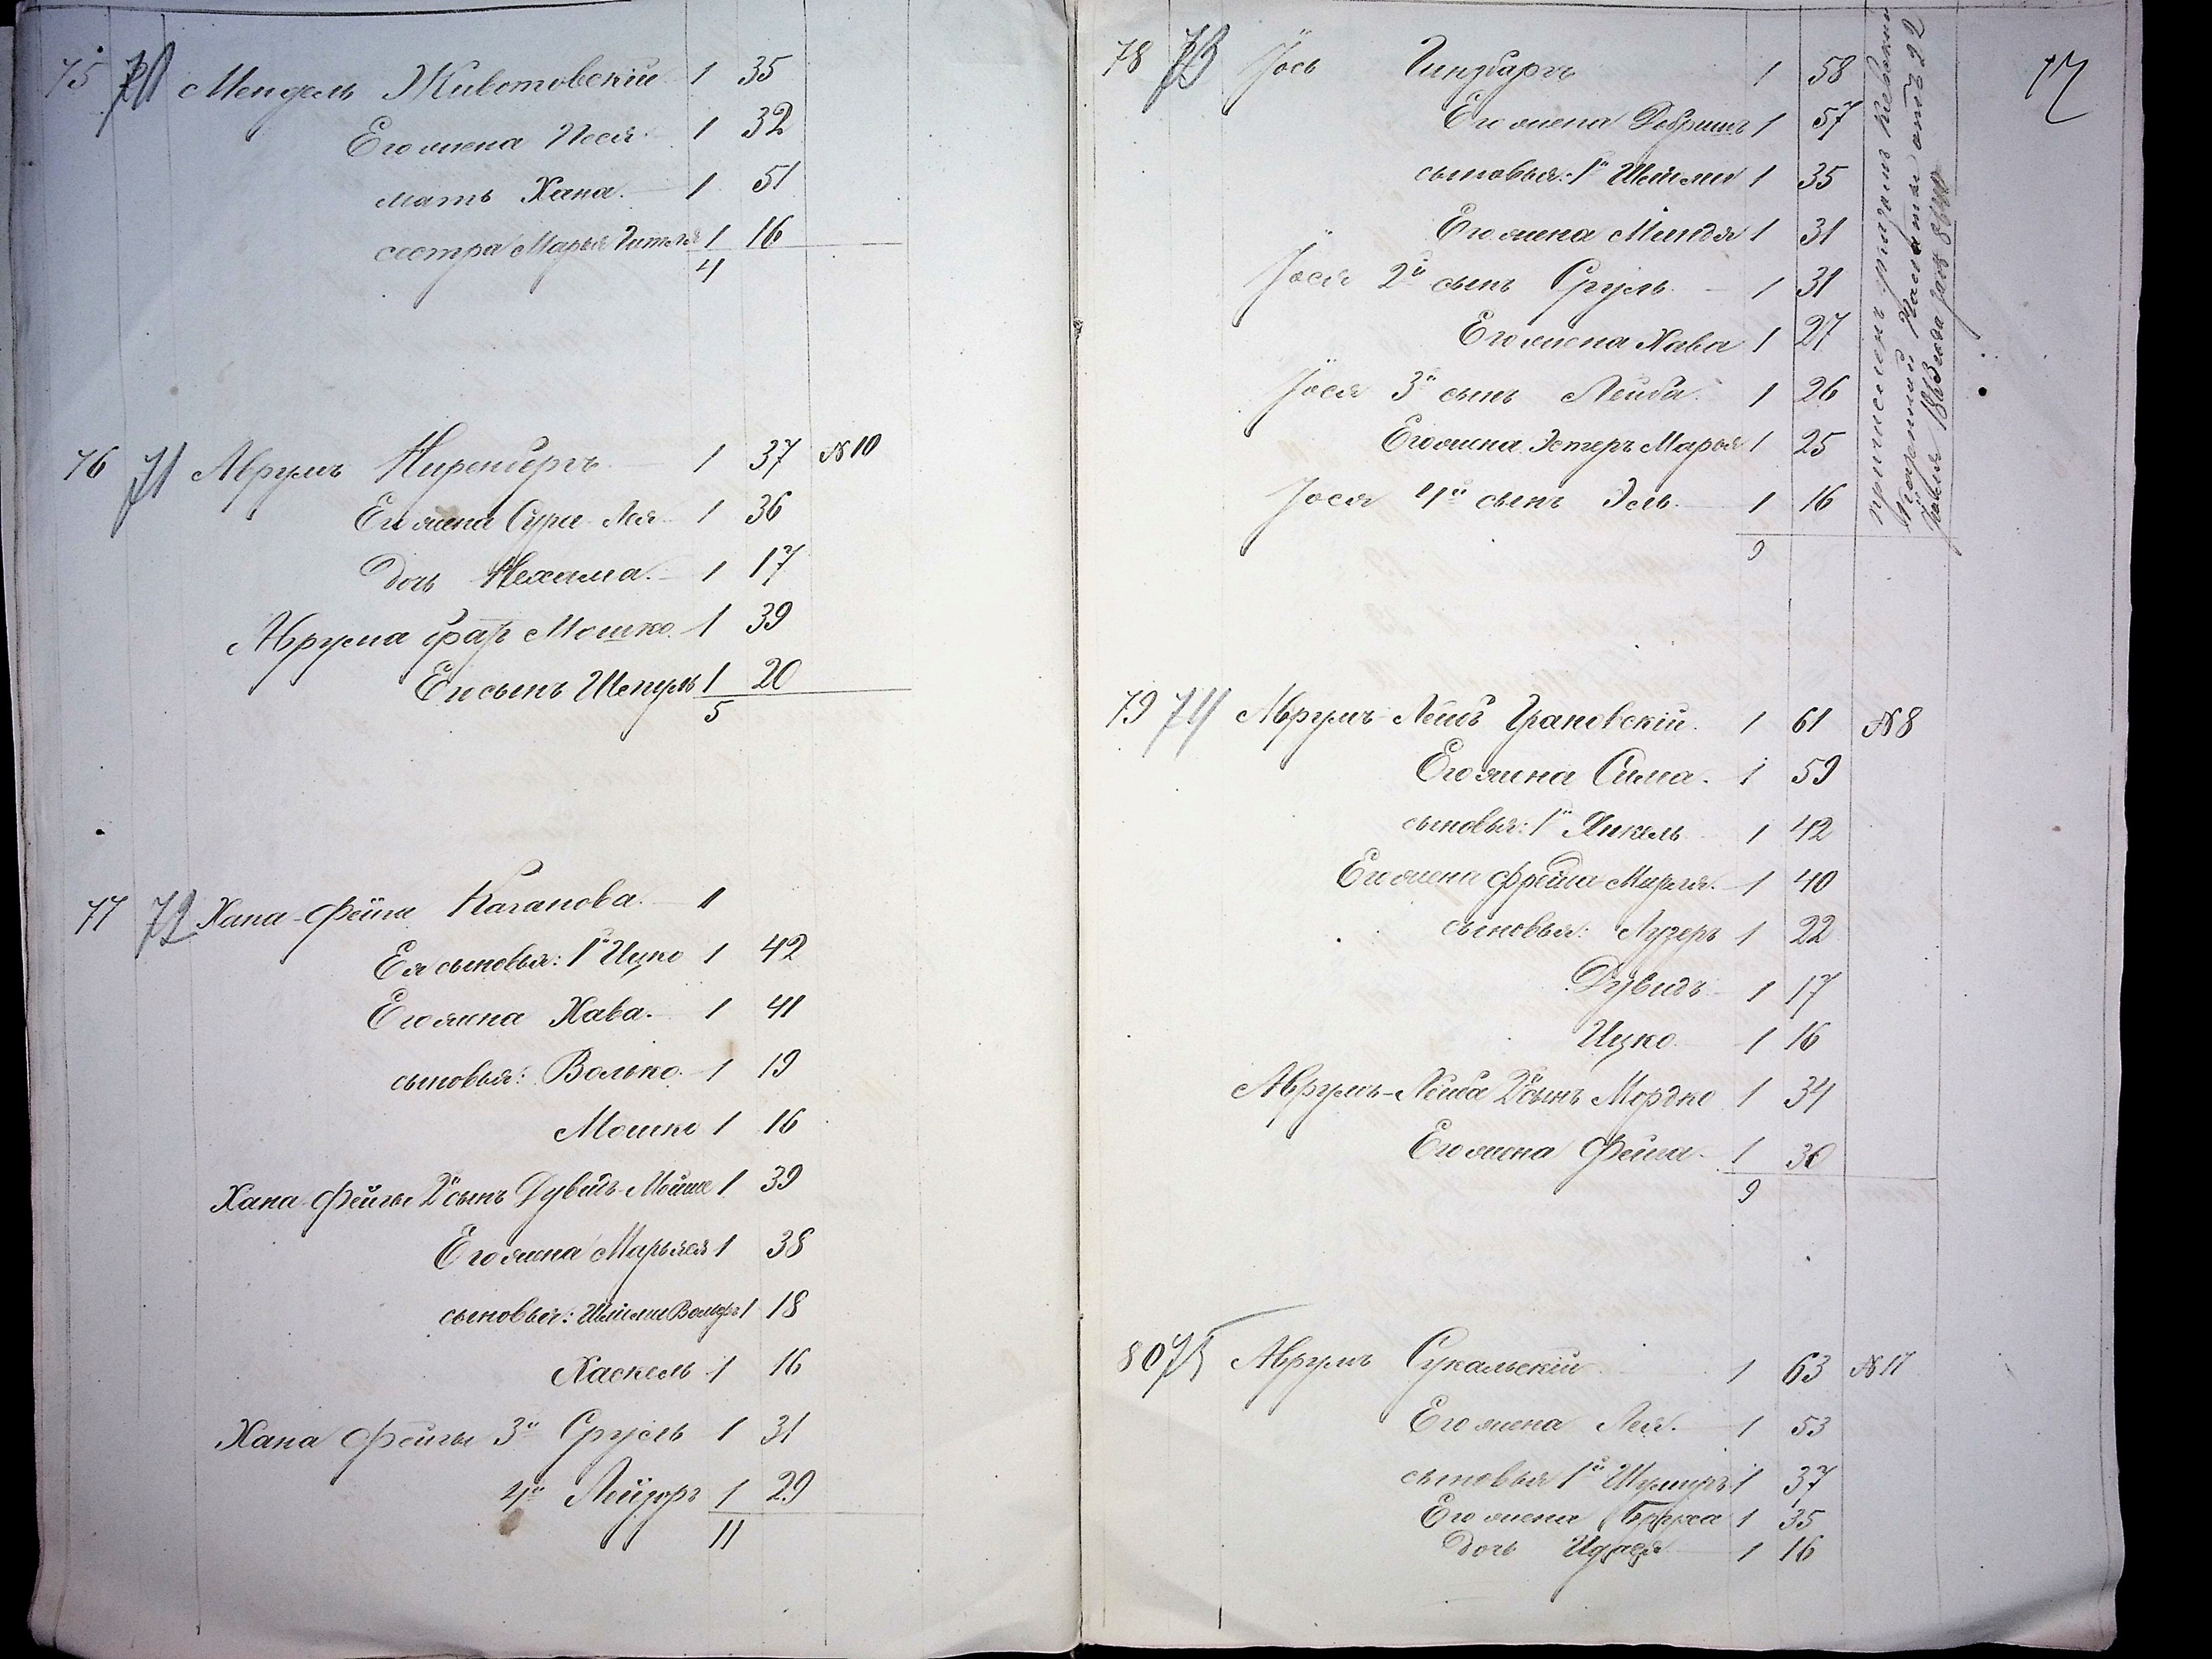 75 70 Мендель Животовскій 1 35
Его жена Песя 1 32
мать Хана. 1 51
сестра Марья Гитля 1 16
4
76 71 Аврумъ Ниренбергъ 1 37 №10
Его жена Сура Лея 1 36
дочь Нехама. 1 17
Аврума братъ Мошко 1 39
Его сынъ Шепсель 1 20
5
77 72 Хана-Фейга Каганова 1
Ея сыновья: 1й Ицко 1 42
Его жена Хава. 1 41
сыновья: Волько. 1 19
Мошко 1 16
Хана-Фейги 2й сынъ Дувидъ-Мойше 1 39
Его жена Марьяся 1 38
сыновья: Шлйома Вольфъ 1 18
Хаскель 1 16
Хана Фейги 3й Сруль 1 31
4й Лейзоръ 1 29
11
17
78 73 Іось Гинзбургъ 1 58
Его жена Добришъ 1 57
сыновья: 1й Шлйома 1 35
Его жена Миндя 1 31
Іося 2й сынъ Сруль 1 31
Его жена Хава 1 27
Іося 3й сынъ Лейба. 1 26
Его жена Эстеръ Марья 1 25
Іося 4й сынъ Эль 1 16
9
причисленъ указомъ Кіевской
Казенной Палаты отъ 22
1863 года за № 8640
79 74 Аврумъ-Лейбъ Грановскій. 1 61 №8
Его жена Сима. 1 59
сыновья: 1й Янкель 1 42
Его жена Фрейга Мирля. 1 40
сыновья: Лузеръ 1 22
Дувидъ 1 17
Ицко 1 16
Аврумъ-Лейба 2й сынъ Мордко 1 34
Его жена Фейга. 1 30
9
80 75 Аврумъ Сукальскій 1 63 №17
Его жена Лея. 1 53
сыновья 1й Шулимъ 1 37
Его жена Бруха 1 35
дочь 1 16